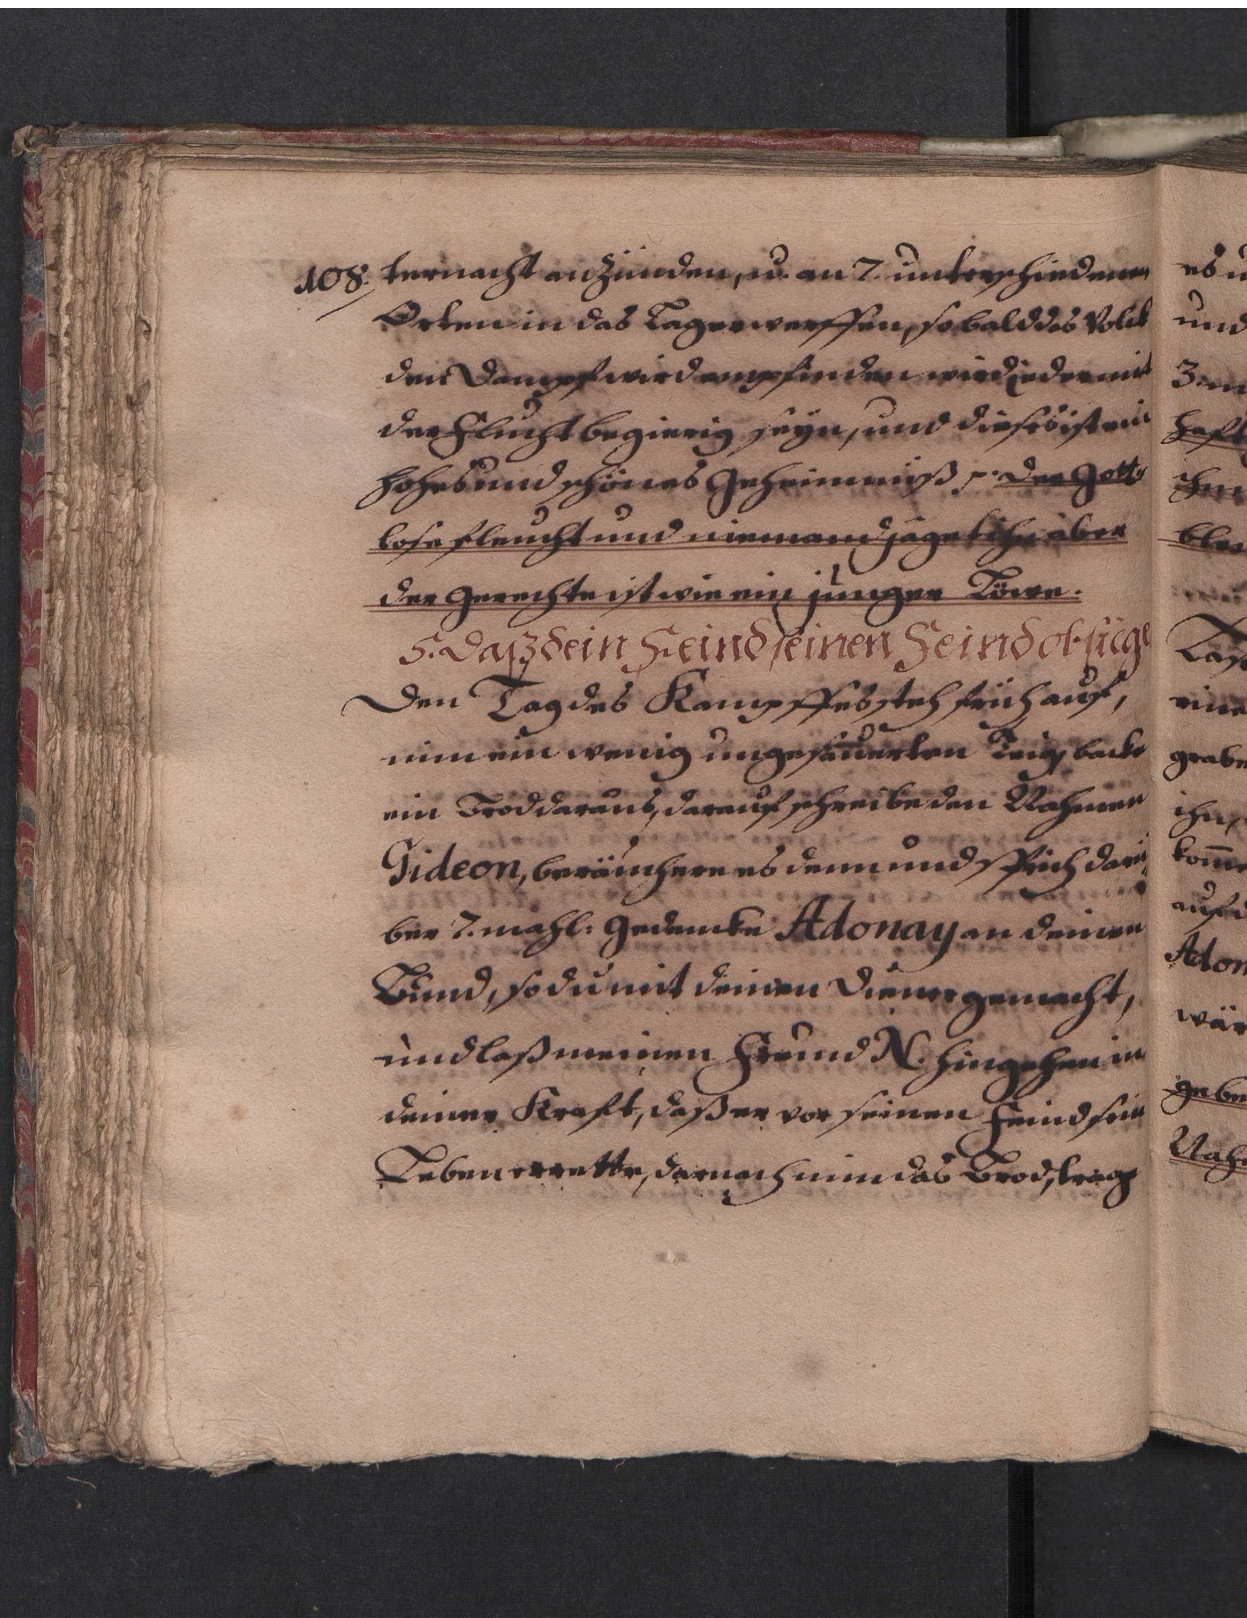 108. ternacht anzünden, u. an 7. unterschiedenen
Orten in das Lager werffen, so bald des Volck
den Dampf wird empfinden wird jeder mit
der Flucht begierig seyn, und dieses ist ein
hohes und schönes Geheimniß p: der Gott
lose fleucht und niemand jaget ihn aber
der Gerechte ist wie ein junger Löwe.
5. Daß dein Feind seinen Feind obsiege
Den Tag des Kampffes steh früh auf,
nim ein wenig ungesäuerten Teig backe
ein Brod daraus, darauf schreibe den Nahmen
Gideon, beräuchere es denn und sprich darü
ber 7. mahl: Gedencke Adonay an deinen
Bund, so du mit deinen Diener gemacht,
und laß meinen Freund N. hingehen in
deiner Kraft, daß er vor seinen Feind sein
Leben errette, darnach nim das Brod, trag
es u
und
haft
ihm
eine
grabe
ihn,
kom̄e
auf d
Adon
wär
geben
Nahm